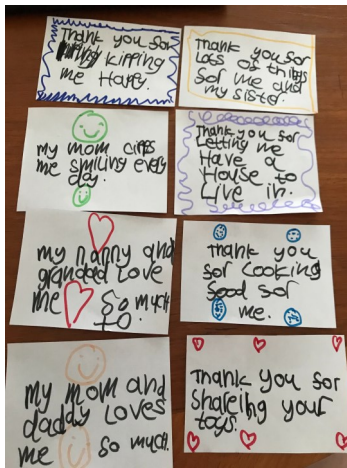 Thank you for
kipping
me Happy.
Thank you for
Lots of things
for me and
my sister.
my mom cips
me smiling every
day.
Thank you for
Letting me
Have a
House to
Live in.
my nanny and
grandad Love
me so much.
Thank you
for cooking
food for
me.
My mom and
daddy Loves
me so much.
Thank you for
shareing your
toys.